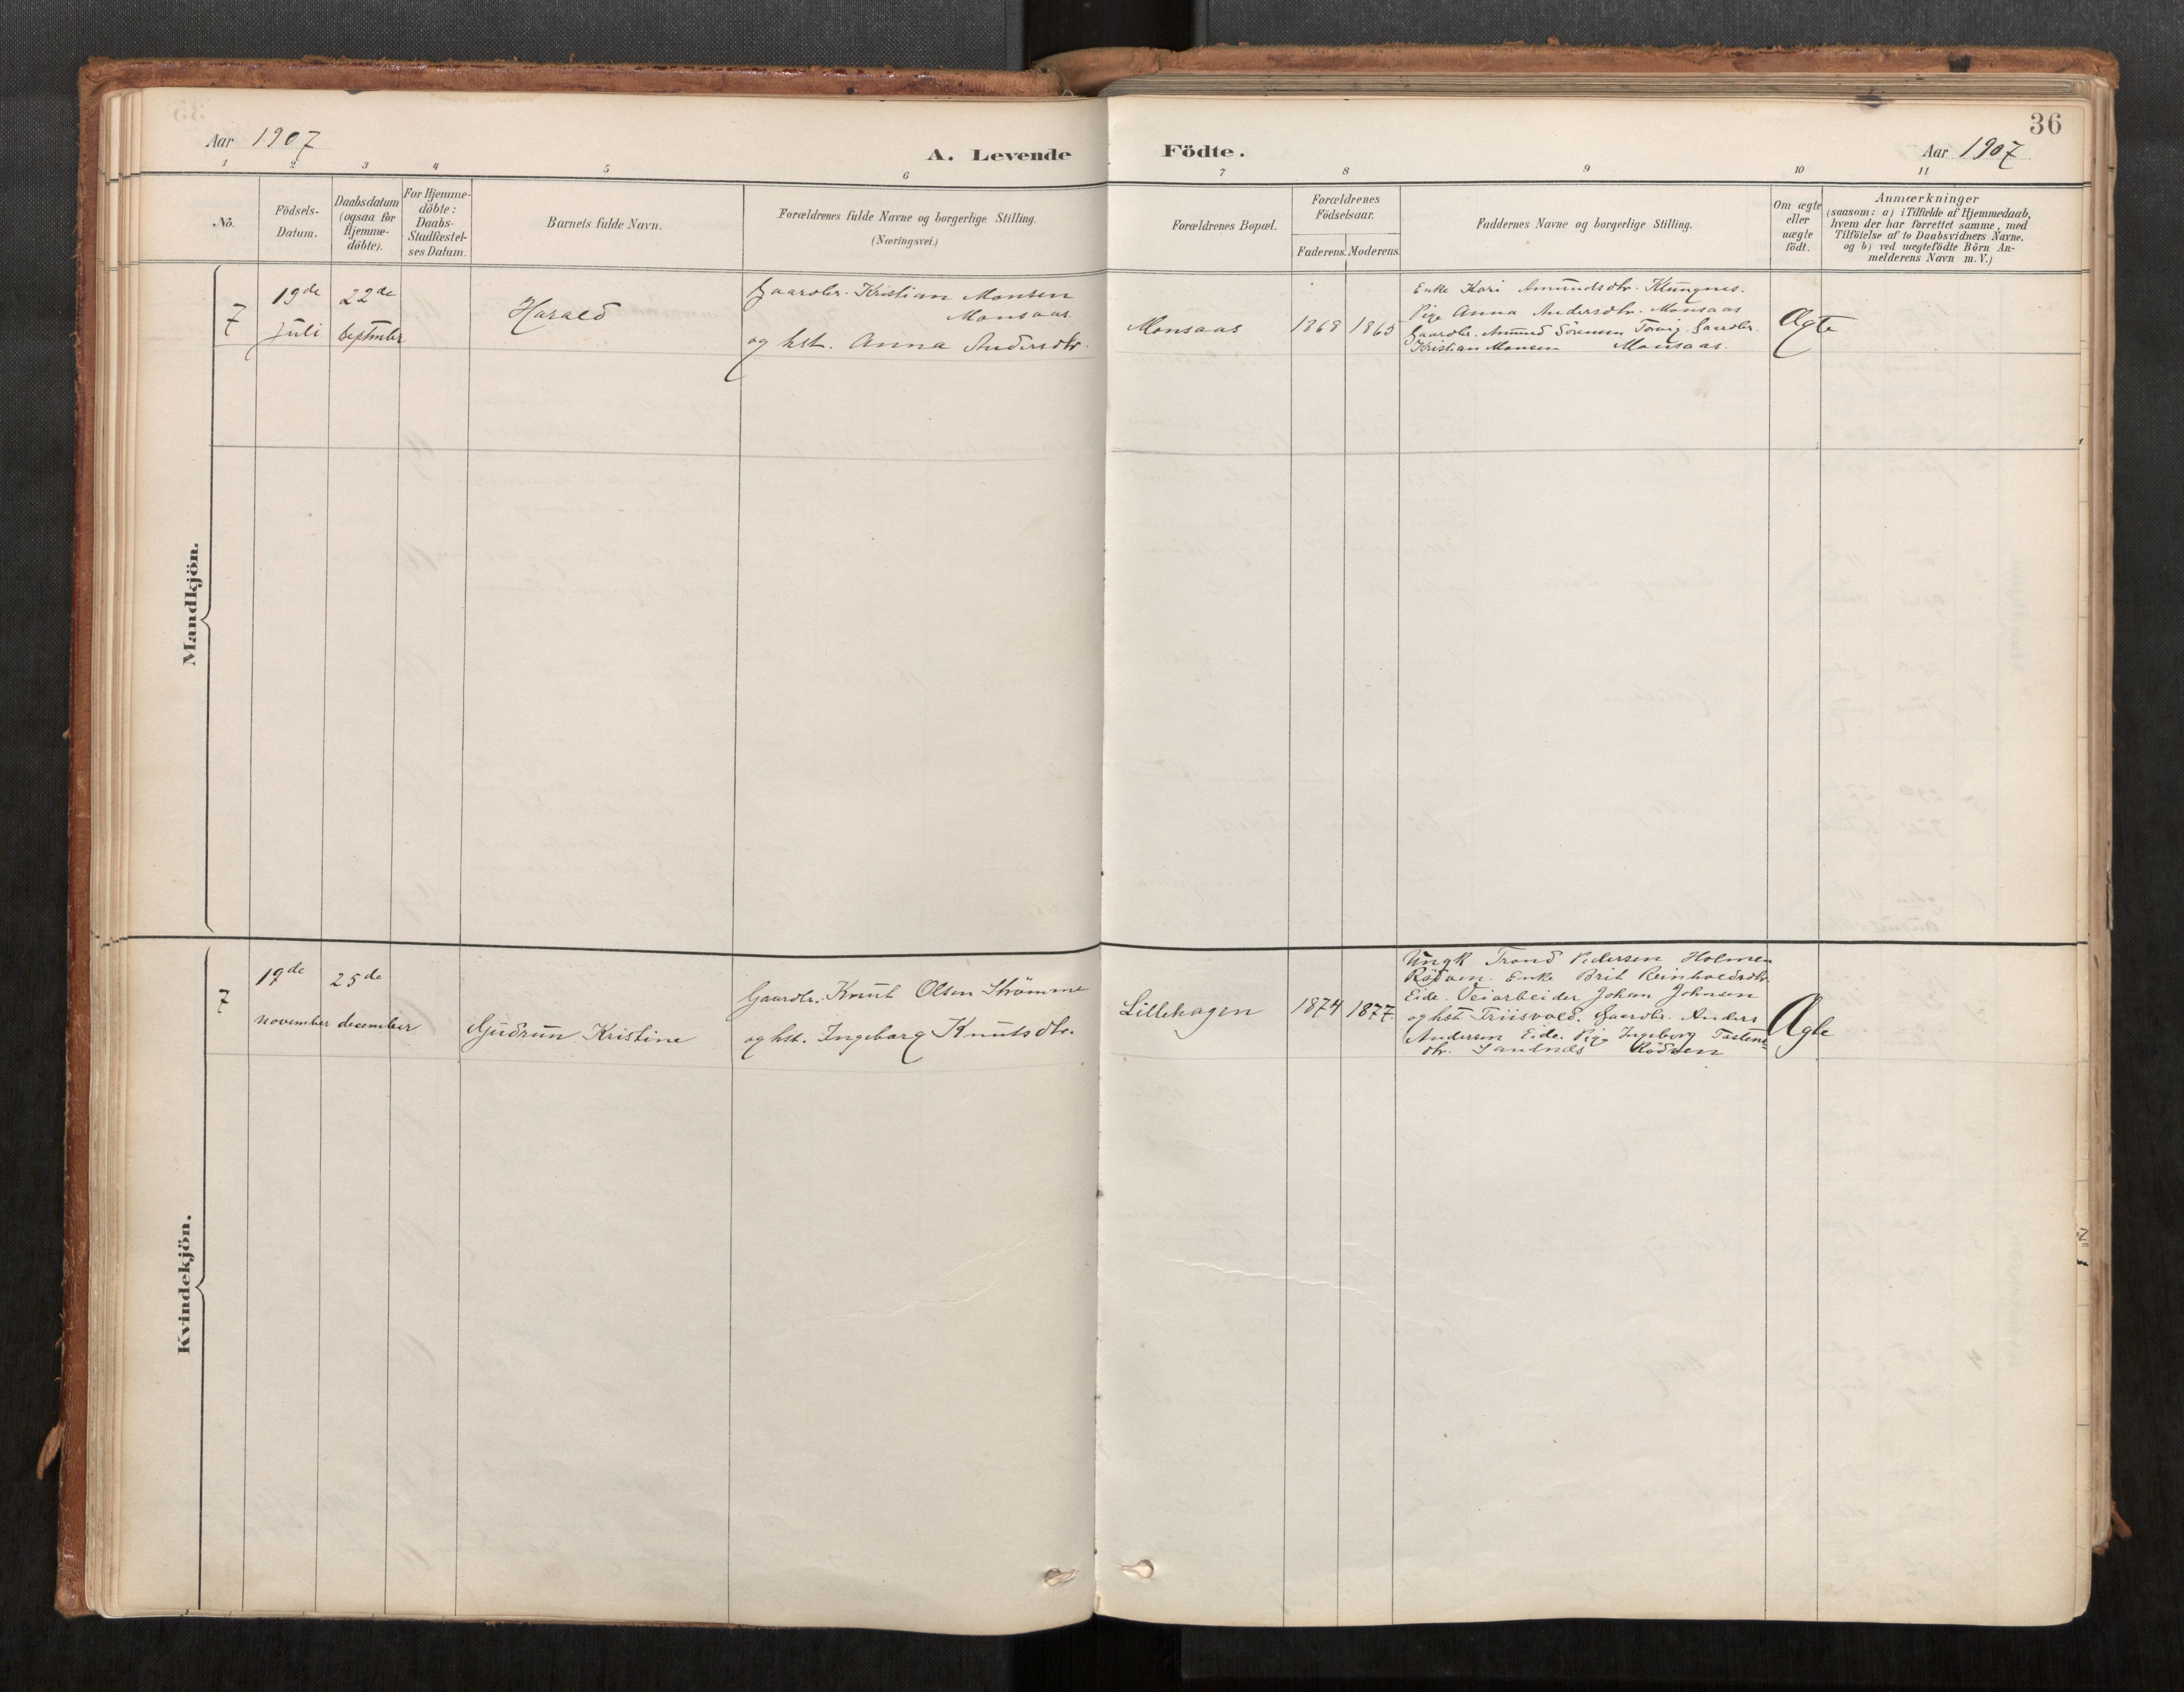 36
Aar 1907
A. Levende Födte.
Aar 1907
1 2 3 4 5 6 7 8 9 10 11
No.
Födsels-
Datum.
Daabsdatum
(ogsaa for
Hjemme-
döbte).
For Hjemme-
döbte:
Daabs-
Stadfæstel-
ses Datum.
Barnets fulde Navn.
Forældrenes fulde Navne og borgerlige Stilling.
(Næringsvei.)
Forældrenes Bopæl.
Forældrenes
Födselsaar.
Faderens. Moderens.
Faddernes Navne og borgerlige Stilling.
Om ægte
eller
uægte
födt.
Anmærkninger
(saasom: a) i Tilfælde af Hjemmedaab,
hvem der har forrettet samme, med
Tilföielse af to Daabsvidners Navne,
og b) ved uægtefödte Börn An-
melderens Navn m. V.)
Mandkjön.
7
19de
Juli
22de
September
Harald
Gaardbr. Kristian Monsen
Monsaas
og hst. Anna Andersdtr.
Monsaas
1868
1865
Enke Kari Amundsdtr. Klungnes.
Pige Anna Andersdtr. Monsaas
Gaardbr. Amund Sörensen Torvig. Gaardbr.
Kristian Monsen Monsaas.
Ægte
Kvindekjön.
7
19de
november
25de
desember
Gudrun Kristine
Gaardbr. Knut Olsen Strömme
og hst. Ingeborg Knutsdtr.
Lillehagen
1874
1877.
Ungk Trond Pedersen Holmen
Rödven. Enke Brit Reinholdsdtr.
Eide. Veiarbeider Johan Johnsen
og hst Triisvold. Gaardbr. Anders
Andersen Eide. Pige Ingeborg Tostens
dtr. Sandnes Rödven
Ægte